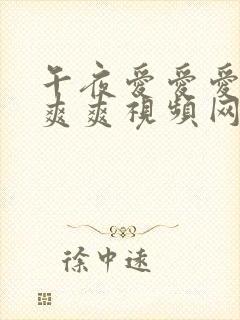 午夜爱爱爱
爽爽視頻网
徐中远